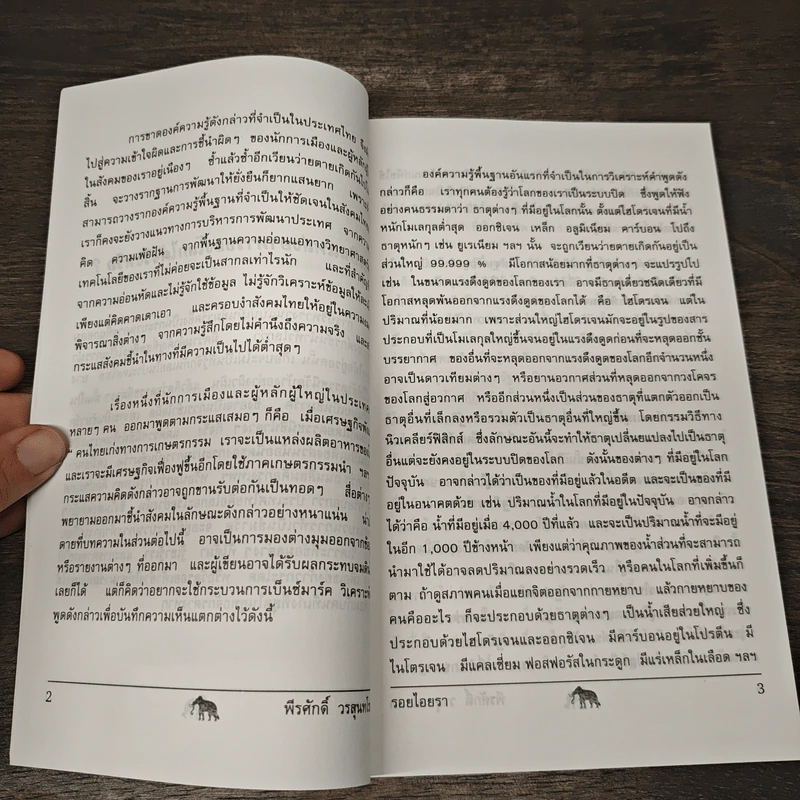 การขาดองค์ความรู้ดังกล่าวที่จำเป็นในประเทศไทย
ไปสู่ความเข้าใจผิดและการชี้นำผิดๆ ของนักการเมืองและผู้หลักผู้
ในสังคมของเราอยู่เนืองๆ ซ้ำแล้วซ้ำอีกเวียนว่ายตายเกิดกัน
สิ้น จะวางรากฐานการพัฒนาให้ยั่งยืนก็ยากแสนยาก
สามารถวางรากองค์ความรู้พื้นฐานที่จำเป็นให้ชัดเจนในสังคม
เราก็คงจะยังวางแนวทางการบริหารการพัฒนาประเทศ จาก
คิด ความเพ้อฝัน จากพื้นฐานความอ่อนแอทางวิทยาศาสตร์
เทคโนโลยีของเราที่ไม่ค่อยจะเป็นสากลเท่าไรนัก และที่สำคัญ
จากความอ่อนหัดและไม่รู้จักใช้ข้อมูล ไม่รู้จักวิเคราะห์ข้อมูลให้
เพียงแต่คิดคาดเดาเอา และครอบงำสังคมไทยให้อยู่ในความ
พิจารณาสิ่งต่างๆ จากความรู้สึกโดยไม่คำนึงถึงความจริง และ
กระแสสังคมชี้นำในทางที่มีความเป็นไปได้ต่ำสุดๆ
เรื่องหนึ่งที่นักการเมืองและผู้หลักผู้ใหญ่ในประเทศ
หลายๆ คน ออกมาพูดตามกระแสเสมอๆ ก็คือ เมื่อเศรษฐกิจ
“ คนไทยเก่งทางการเกษตรกรรม เราจะเป็นแหล่งผลิตอาหารของ
และเราจะมีเศรษฐกิจเฟื่องฟูขึ้นอีกโดยใช้ภาคเกษตรกรรมนำ ฯลฯ
กระแสความคิดดังกล่าวอาจถูกขานรับต่อกันเป็นทอดๆ สื่อต่างๆ
พยายามออกมาชี้นำสังคมในลักษณะดังกล่าวอย่างหนาแน่น
ดายที่บทความในส่วนต่อไปนี้ อาจเป็นการมองต่างมุมออกจาก
หรือรายงานต่างๆ ที่ออกมา และผู้เขียนอาจได้รับผลกระทบจมดิน
เลยก็ได้ แต่ก็คิดว่าอยากจะใช้กระบวนการเบ็นช์มาร์ค วิเคราะห์
พูดดังกล่าวเพื่อบันทึกความเห็นแตกต่างไว้ดังนี้
2 พีรศักดิ์ วรสุนทโร
องค์ความรู้พื้นฐานอันแรกที่จำเป็นในการวิเคราะห์คำพูดดัง
กล่าวก็คือ เราทุกคนต้องรู้ว่าโลกของเราเป็นระบบปิด ซึ่งพูดให้ฟัง
อย่างคนธรรมดาว่า ธาตุต่างๆ ที่มีอยู่ในโลกนั้น ตั้งแต่ไฮโดรเจนที่มีน้ำ
หนักโมเลกุลต่ำสุด ออกซิเจน เหล็ก อลูมิเนียม คาร์บอน ไปถึง
ธาตุหนักๆ เช่น ยูเรเนียม ฯลฯ นั้น จะถูกเวียนว่ายตายเกิดกันอยู่เป็น
ส่วนใหญ่ 99.999 % มีโอกาสน้อยมากที่ธาตุต่างๆ จะแปรรูปไป
เช่น ในขนาดแรงดึงดูดของโลกของเรา อาจมีธาตุเดี่ยวชนิดเดียวที่มี
โอกาสหลุดพ้นออกจากแรงดึงดูดของโลกได้ คือ ไฮโดรเจน แต่ใน
ปริมาณที่น้อยมาก เพราะส่วนใหญ่ไฮโดรเจนมักจะอยู่ในรูปของสาร
ประกอบที่เป็นโมเลกุลใหญ่ขึ้นจนอยู่ในแรงดึงดูดก่อนที่จะหลุดออกชั้น
บรรยากาศ ของอื่นที่จะหลุดออกจากแรงดึงดูดของโลกอีกจำนวนหนึ่ง
อาจเป็นดาวเทียมต่างๆ หรือยานอวกาศส่วนที่หลุดออกจากวงโคจร
ของโลกสู่อวกาศ หรืออีกส่วนหนึ่งเป็นส่วนของธาตุที่แตกตัวออกเป็น
ธาตุอื่นที่เล็กลงหรือรวมตัวเป็นธาตุอื่นที่ใหญ่ขึ้น โดยกรรมวิธีทาง
นิวเคลียร์ฟิสิกส์ ซึ่งลักษณะอันนี้จะทำให้ธาตุเปลี่ยนแปลงไปเป็นธาตุ
อื่นแต่จะยังคงอยู่ในระบบปิดของโลก ดังนั้นของต่างๆ ที่มีอยู่ในโลก
ปัจจุบัน อาจกล่าวได้ว่าเป็นของที่มีอยู่แล้วในอดีต และจะเป็นของที่มี
อยู่ในอนาคตด้วย เช่น ปริมาณน้ำในโลกที่มีอยู่ในปัจจุบัน อาจกล่าว
ได้ว่าคือ น้ำที่มีอยู่เมื่อ 4,000 ปีที่แล้ว และจะเป็นปริมาณน้ำที่จะมีอยู่
ในอีก 1,000 ปีข้างหน้า เพียงแต่ว่าคุณภาพของน้ำส่วนที่จะสามารถ
นำมาใช้ได้อาจลดปริมาณลงอย่างรวดเร็ว หรือคนในโลกที่เพิ่มขึ้นก็
ตาม ถ้าดูสภาพคนเมื่อแยกจิตออกจากกายหยาบ แล้วกายหยาบของ
คนคืออะไร ก็จะประกอบด้วยธาตุต่างๆ เป็นน้ำเสียส่วนใหญ่ ซึ่ง
ประกอบด้วยไฮโดรเจนและออกซิเจน มีคาร์บอนอยู่ในโปรตีน มี
ไนโตรเจน มีแคลเซี่ยม ฟอสฟอรัสในกระดูก มีแร่เหล็กในเลือด ฯลฯ
รอยไอยรา 3